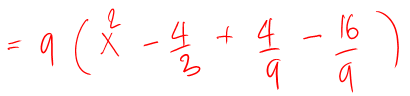 = 9 ( x² - 4/3 + 4/9 - 16/9 )